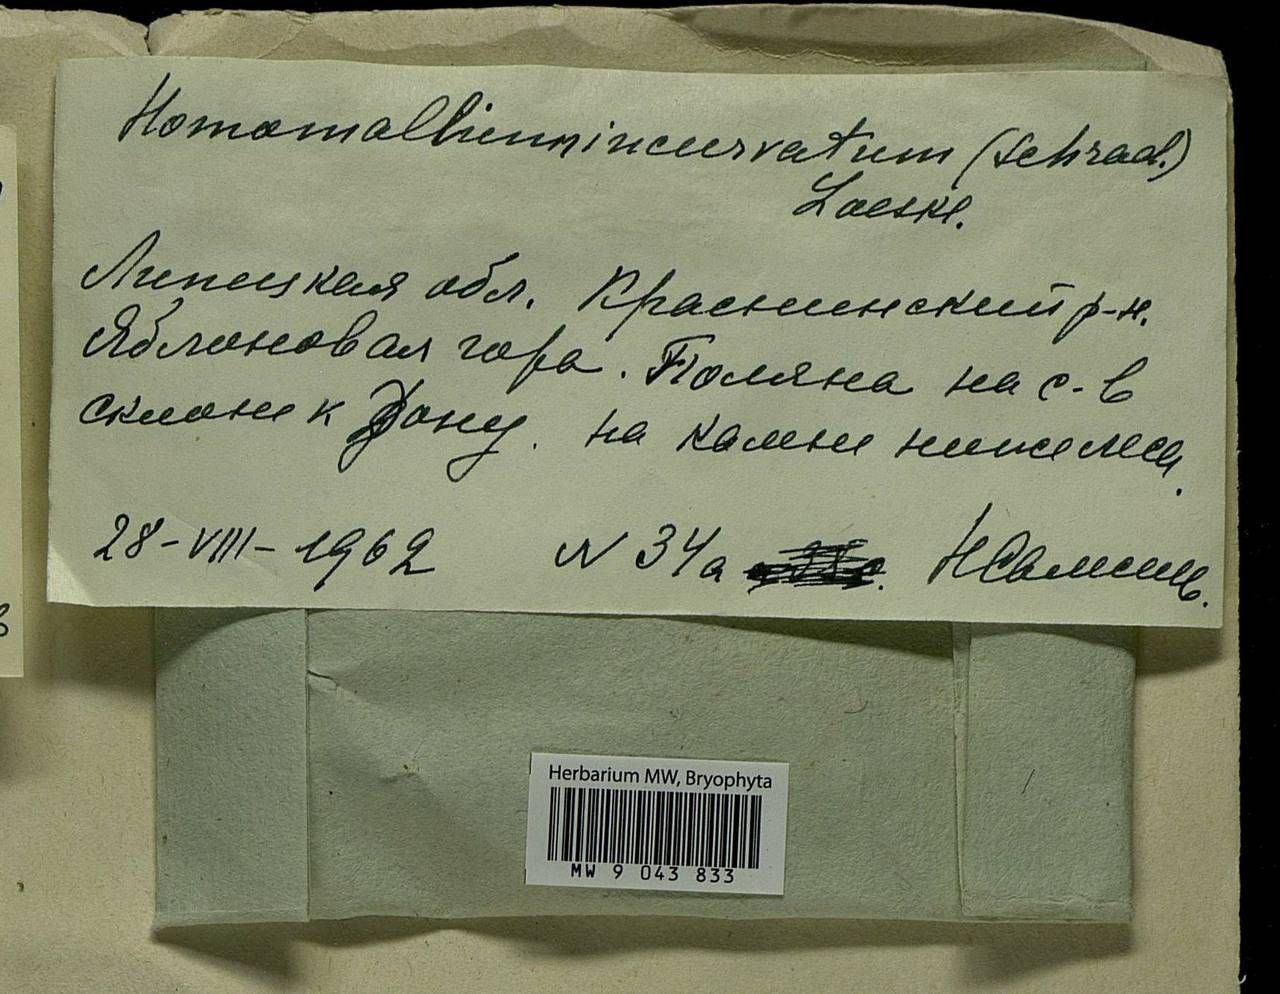 Homomallium incurvatum (Schrad.)
Loeske.
Липецкая обл. Краснинский р-н.
Яблоновая гора. Поляна на с.-в
склоне к Дону. на камне ниже леса.
28-VIII-1962 N 34a Н
Herbarium MW, Bryophyta
MW 9 043 833